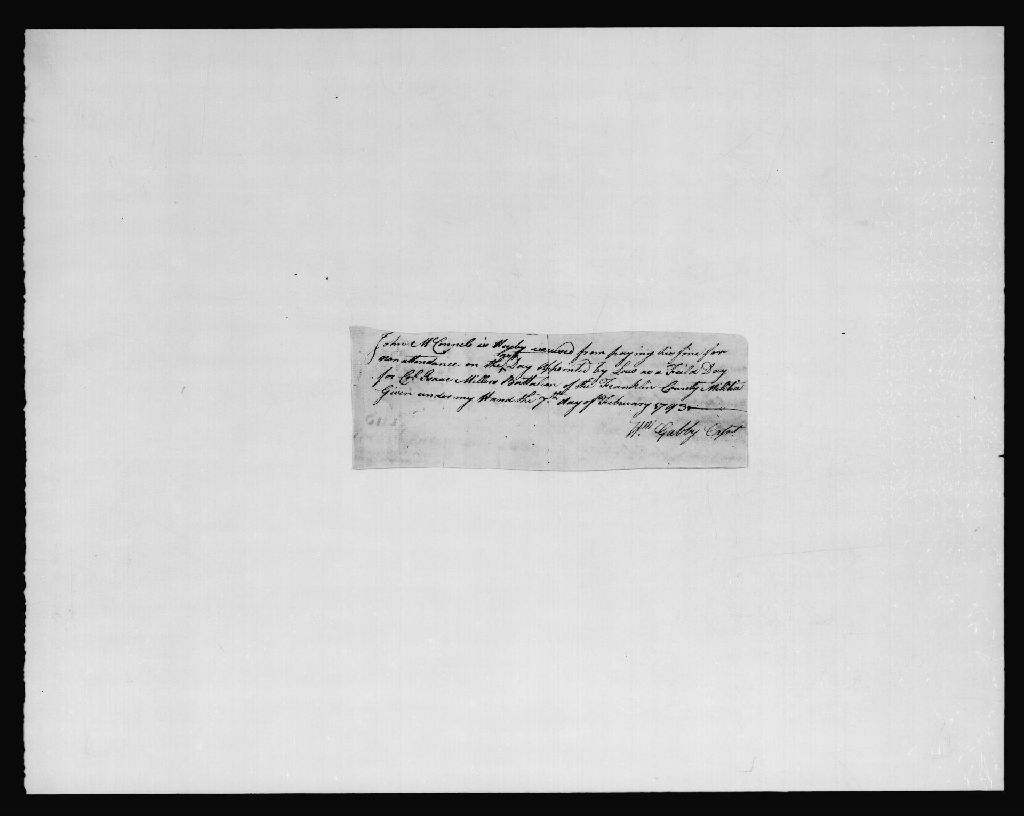 John McConnels is Hereby excused from paying his fine for
non attendance on the last Day Appointed by Law as a Field Day
for Col Isaac Millers Battalian of the Franklin County Militia
Given under my Hand the 7th day of February 1793
Wm Gabby Capt